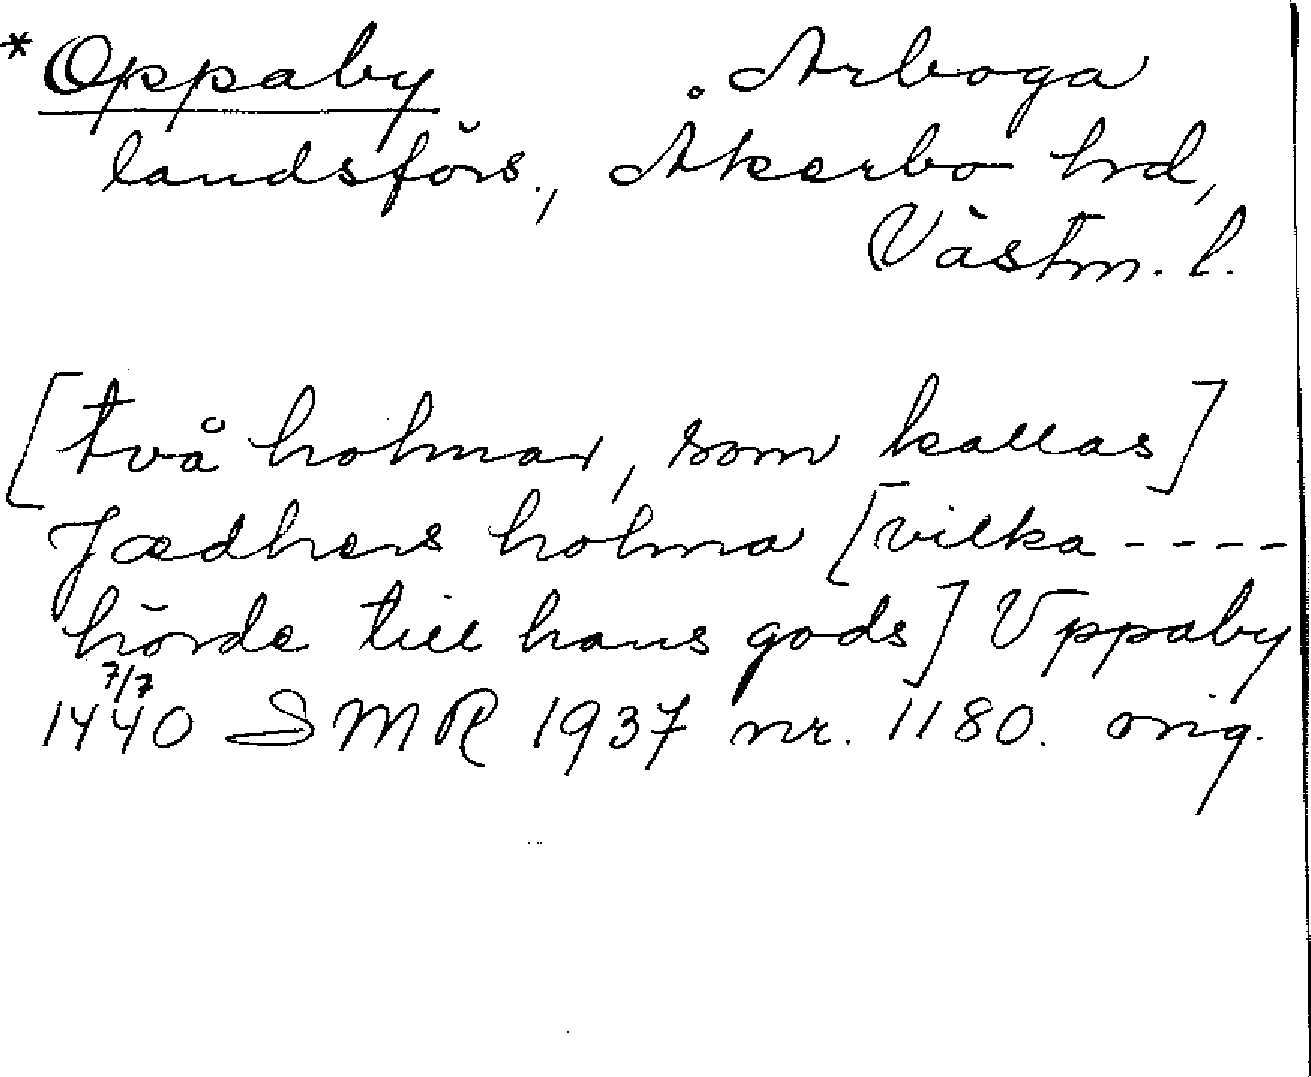 *Oppaby Arboga
landsförs., Åkerbo hrd,
Västm. l.
[två holmar, som kallas]
Jædhers holma [vilka ----
hörde till hans gods] Uppaby
1440 7/7 SMR 1937 nr. 1180. orig.